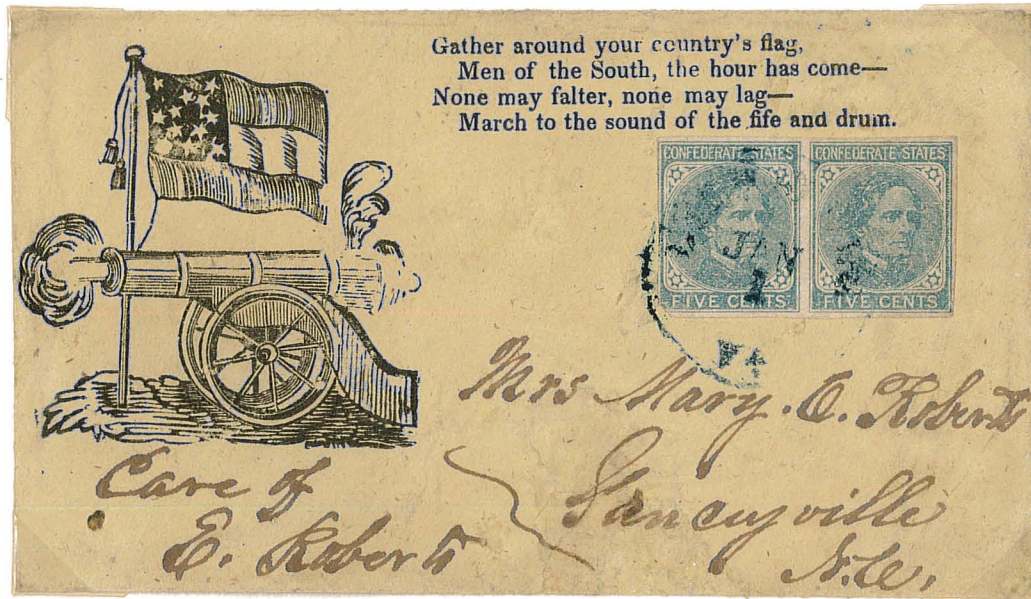 Gather around your country's flag,
Men of the South, the hour has come—
None may falter, none may lag—
March to the sound of the fife and drum.
CONFEDERATE STATES CONFEDERATE STATES
JAN
1
FIVE CENTS FIVE CENTS
VA
Mrs Mary. C. Roberts
Care of
Yanceyville
E. Roberts
N.C.